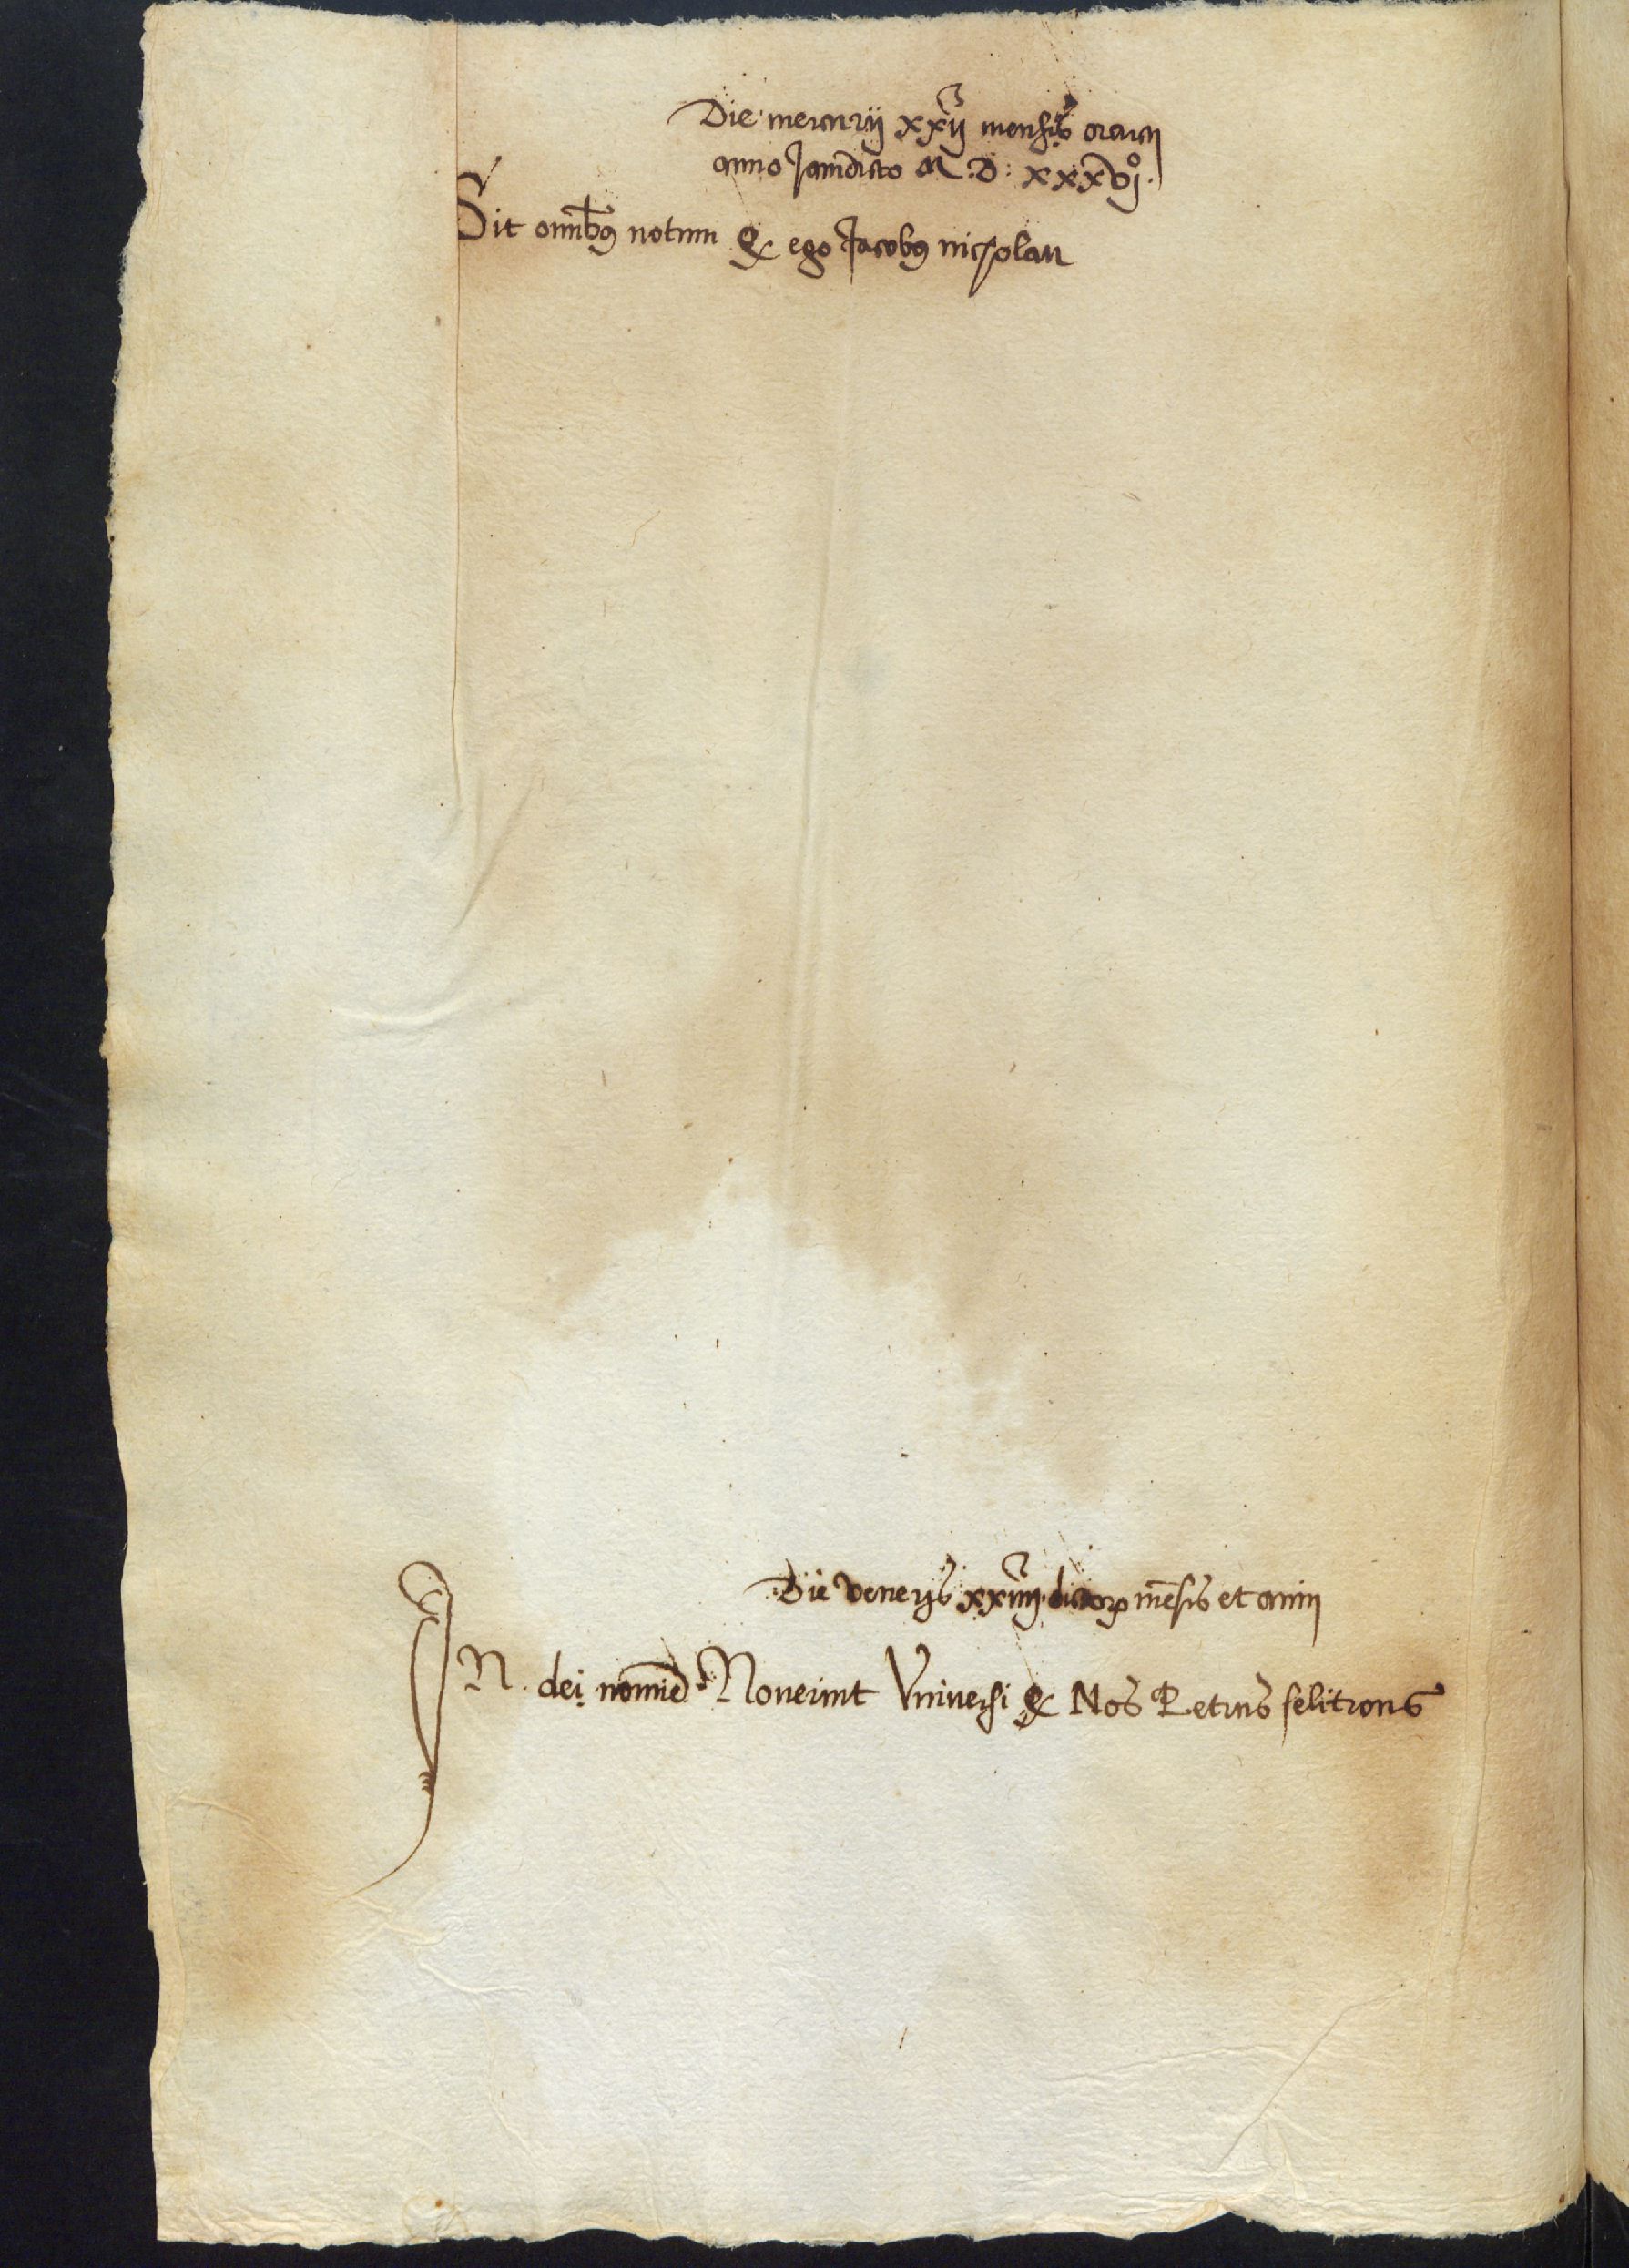 Die mercurij xxij mensis marcij
anno Jamdicto M.D. xxxvjº.
Sit omnibus notum q ego Jacobus nicholau
Die veneris xxiiij dictorum mensis et anni
IN dei nomine Noverint Vniversi q Nos Petrus felitrons